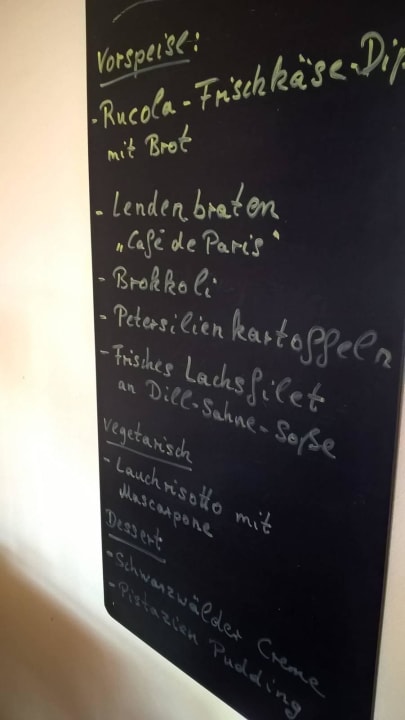 Vorspeise:
- Rucola - Frischkäse-Dip
mit Brot
- Lendenbraten
„Café de Paris"
- Brokkoli
- Petersilienkartoffeln
- Frisches Lachsfilet
an Dill-Sahne-Soße
vegetarisch
- Lauchrisotto mit
Mascarpone
Dessert
- Schwarzwälder Creme
- Pistazien Pudding